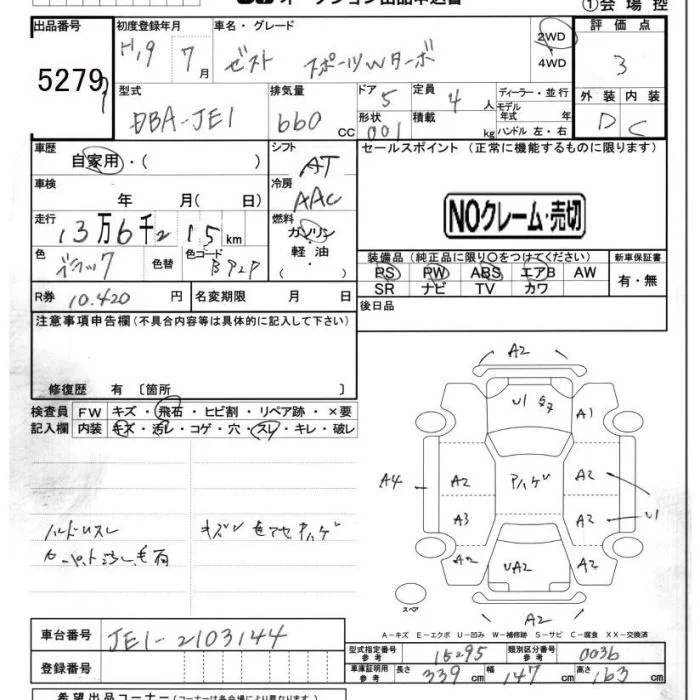 オークション出品申込書 ①会場控
出品番号 初度登録年月 車名・グレード 2WD 4WD 評価点
5279 H19 7月 ゼスト スポーツWターボ 3
型式 排気量 ドア 定員 ディーラー・並行 外装 内装
DBA-JE1 660 cc 5 4人 モデル年式 年 D C
形状 積載 kg ハンドル 左・右
001
車歴 自家用・( ) シフト AT セールスポイント (正常に機能するものに限ります)
車検 年 月(日) 冷房 AAC
NOクレーム・売切
走行 13万6千215km 燃料 ガソリン・軽油・
色 ブラック 色替 色コード
装備品(純正品に限り○をつけてください) 新車保証書
PS PW ABS エアB AW 有・無
SR ナビ TV カワ
R券 10.420円 名変期限 月 日 後日品
注意事項申告欄(不具合内容等は具体的に記入して下さい)
修復歴 有 [箇所 ]
検査員 FW キズ・飛石・ヒビ割・リペア跡・×要
記入欄 内装 キズ・汚レ・コゲ・穴・スレ・キレ・破レ
A2
U1 A1
A4 A2 A2
A3 A2 U1
A2 UA2 A2
スペア A2
A－キズ E－エクボ U－凹み W－補修跡 S－サビ C－腐食 XX－交換済
車台番号 JE1-2103144
型式指定番号 参考 15295 類別区分番号 参考 0036
登録番号 車庫証明用 参考 長さ 339cm 幅 147cm 高さ 163cm
希望出品コーナー(コーナーは各会場により異なります)